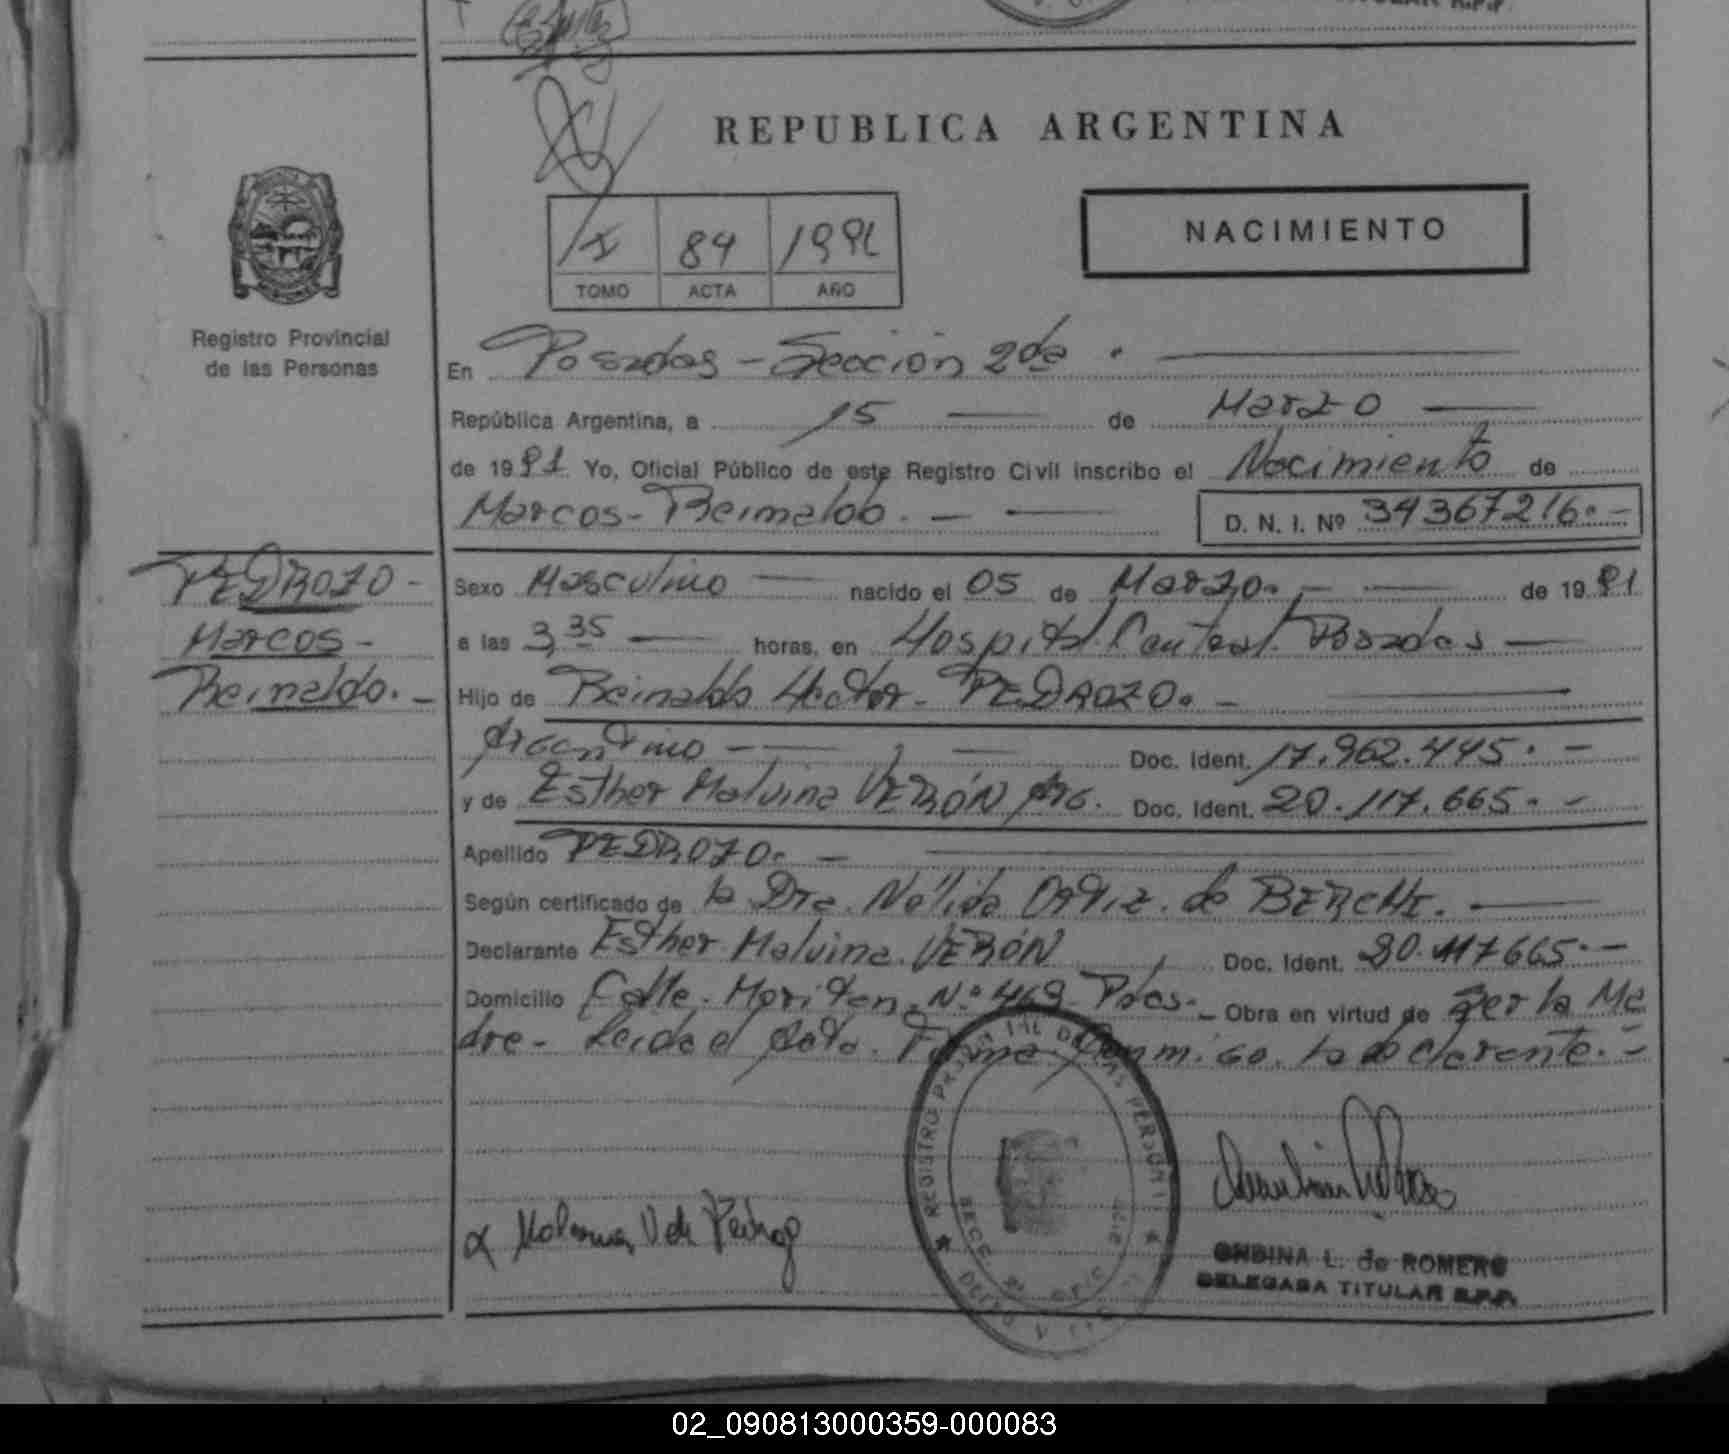 TITULAR R.P.P.
REPUBLICA ARGENTINA
NACIMIENTO
I 84 1991
TOMO ACTA AÑO
Registro Provincial
de las Personas
En Posadas - Sección 2da.
República Argentina, a 15 de Marzo
de 1991 Yo, Oficial Público de este Registro Civil inscribo el Nacimiento de
Marcos - Reinaldo. - D. N. I. Nº 34367216. -
PEDROZO -
Marcos -
Reinaldo. -
Sexo Masculino nacido el 05 de Marzo. - de 1991
a las 3,35 horas, en Hospital Central Posadas
Hijo de Reinaldo Hector - PEDROZO. -
Argentino - Doc. Ident. 17.962.445. -
y de Esther Malvina VERÓN Arg. Doc. Ident. 20.117.665. -
Apellido PEDROZO. -
Según certificado de la Dra. Nélida Ortiz de BERCHI.
Declarante Esther Malvina VERÓN Doc. Ident. 20.117665. -
Domicilio Calle Nº 469 Pdas. - Obra en virtud de Ser la Ma
dre - Leida el Acta. Firma Conmigo. la declarante. -
REGISTRO PROVINCIAL DE LAS PERSONAS
ONDINA L. de ROMERO
DELEGADA TITULAR R.P.P.
02_090813000359-000083